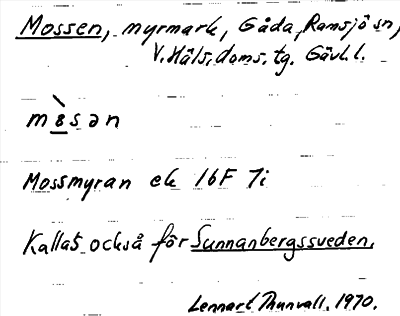 Mossen, myrmark, Gåda, Ramsjö sn,
V. Häls. doms. tg. Gävl. l.
mɵ̀sən
Mossmyran ek 16F 7i
Kallas också för Sunnanbergssveden.
Lennart Thunvall. 1970.